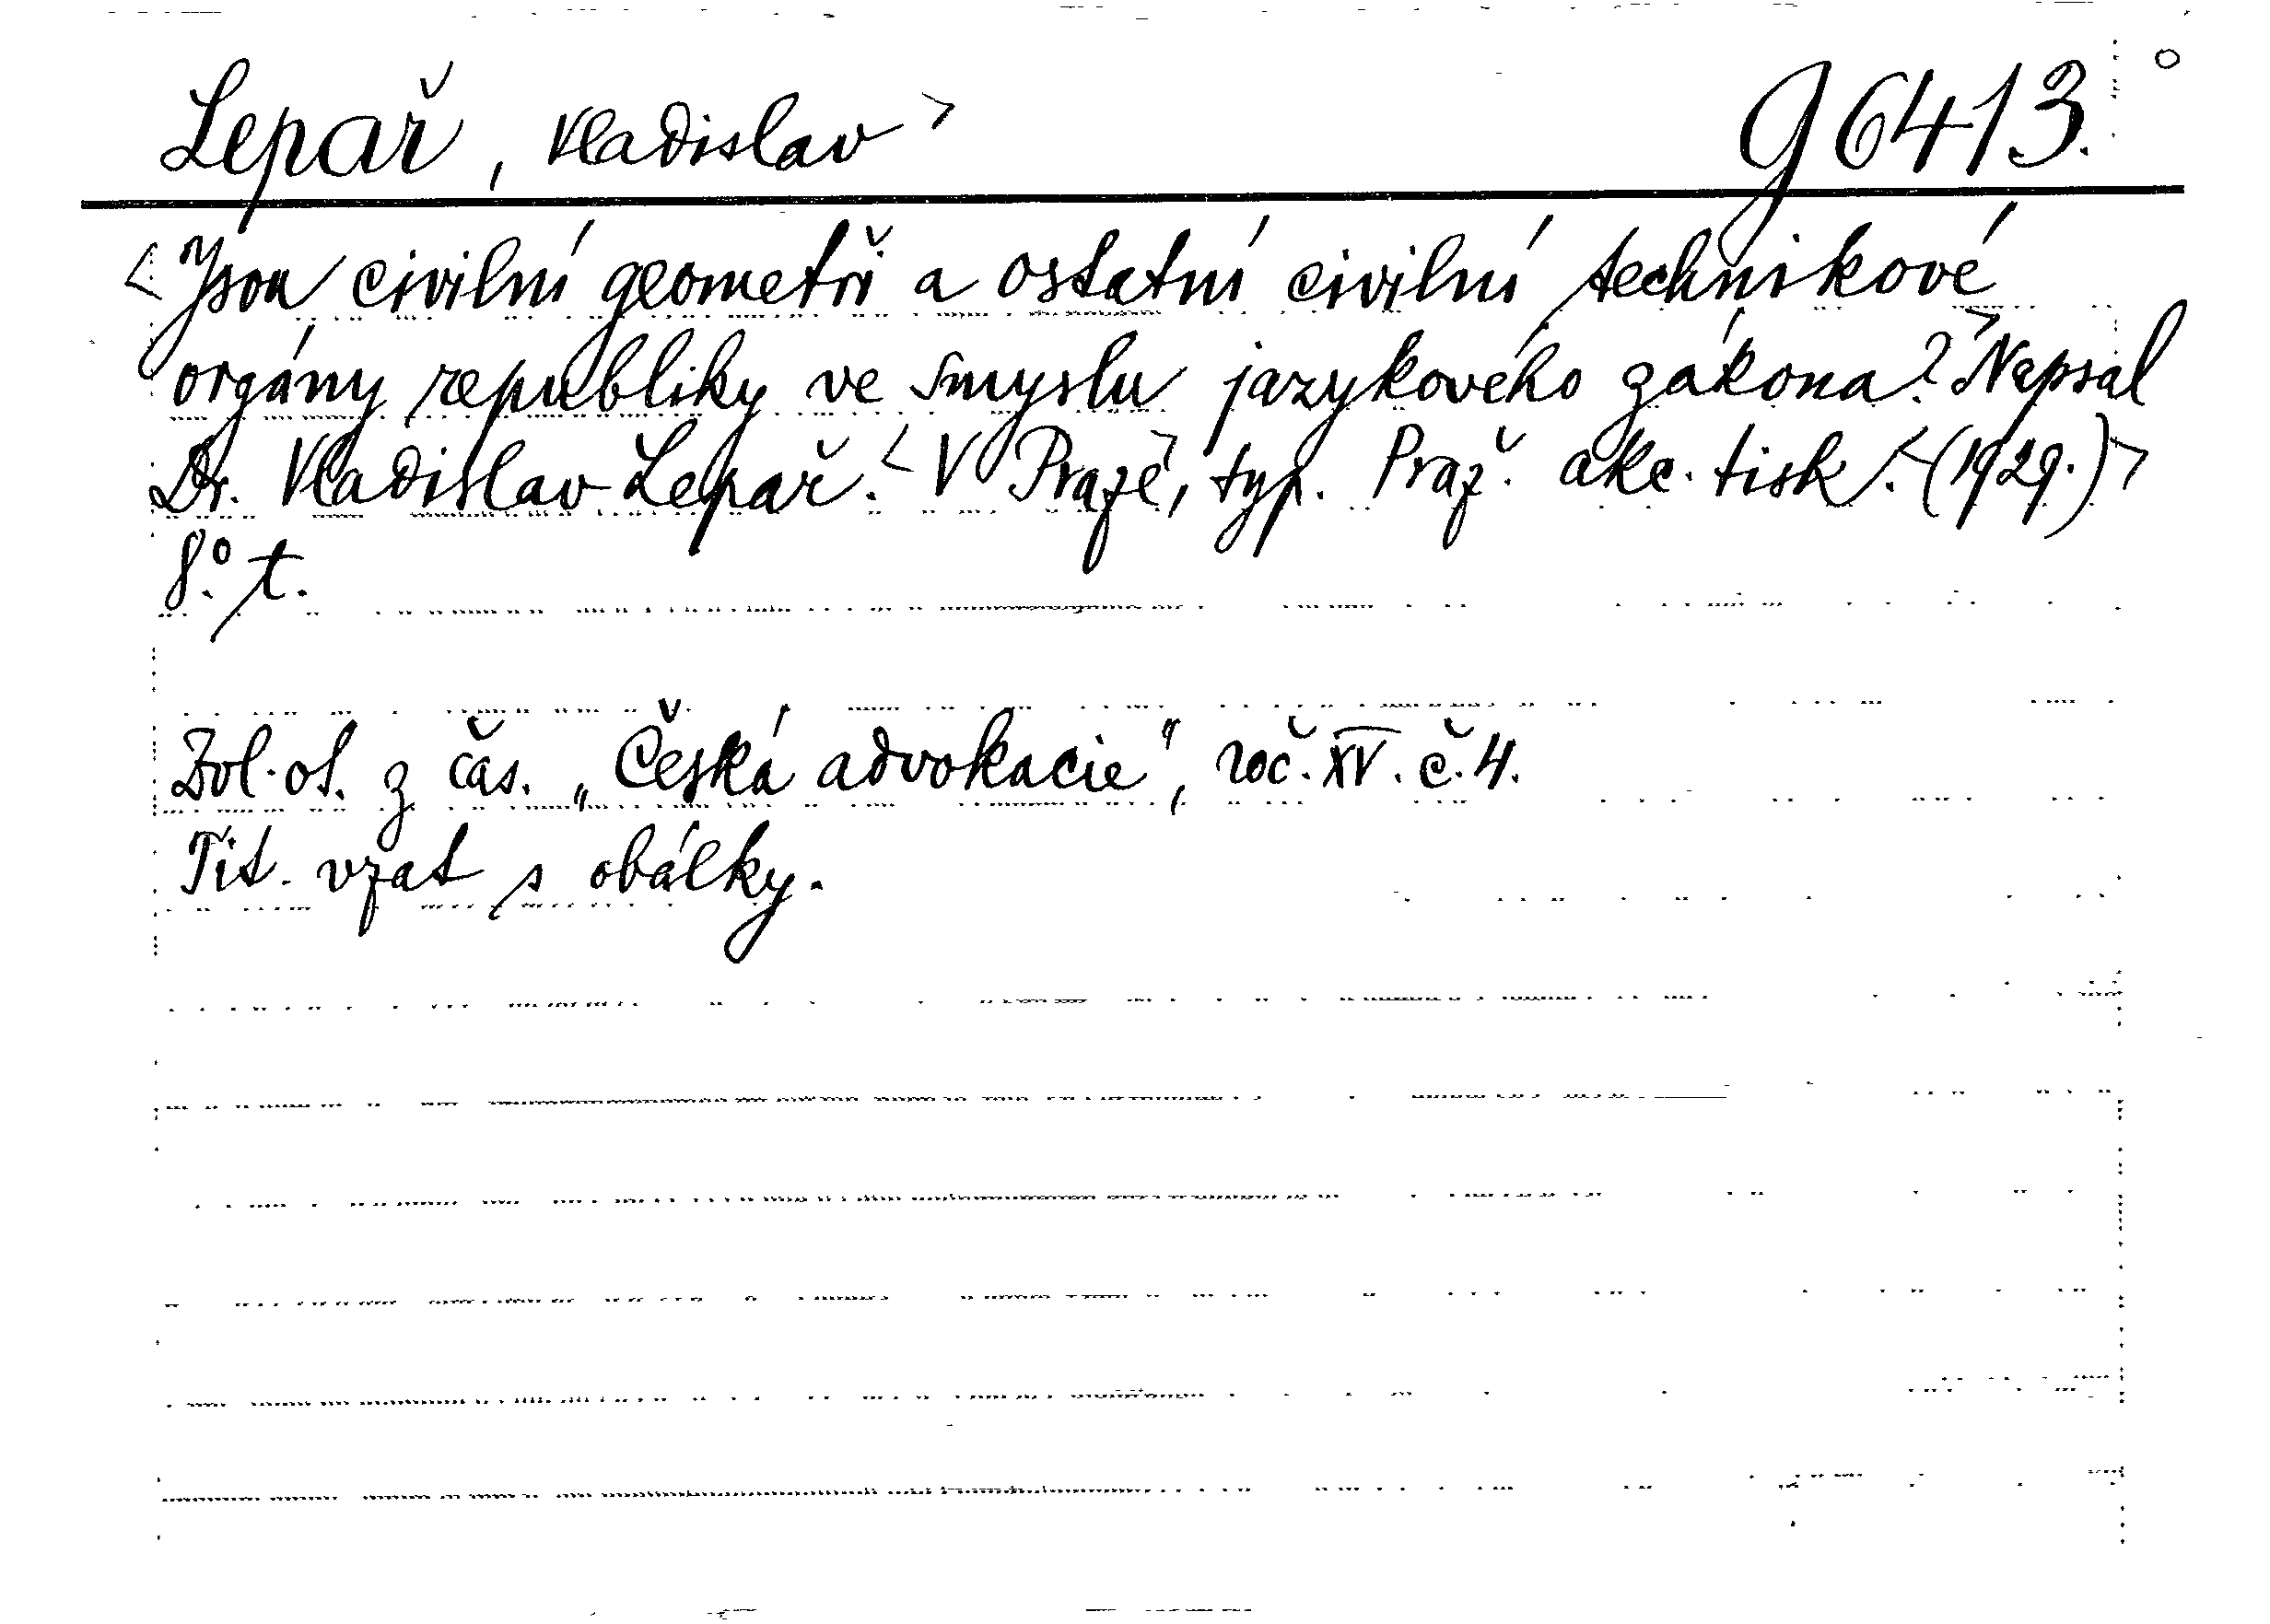 Lepař, Vladislav> g 6413.
<Jsou civilní geometři a ostatní civilní technikové
orgány republiky ve smyslu jazykového zákona?> Napsal
Dr. Vladislav Lepař. <V Praze>, typ. Praž. akc. tisk. <(1929.)>
8.° t.
Zvl. ot. z čas. „Česká advokacie", roč. XV. č. 4.
Tit. vzat s obálky.